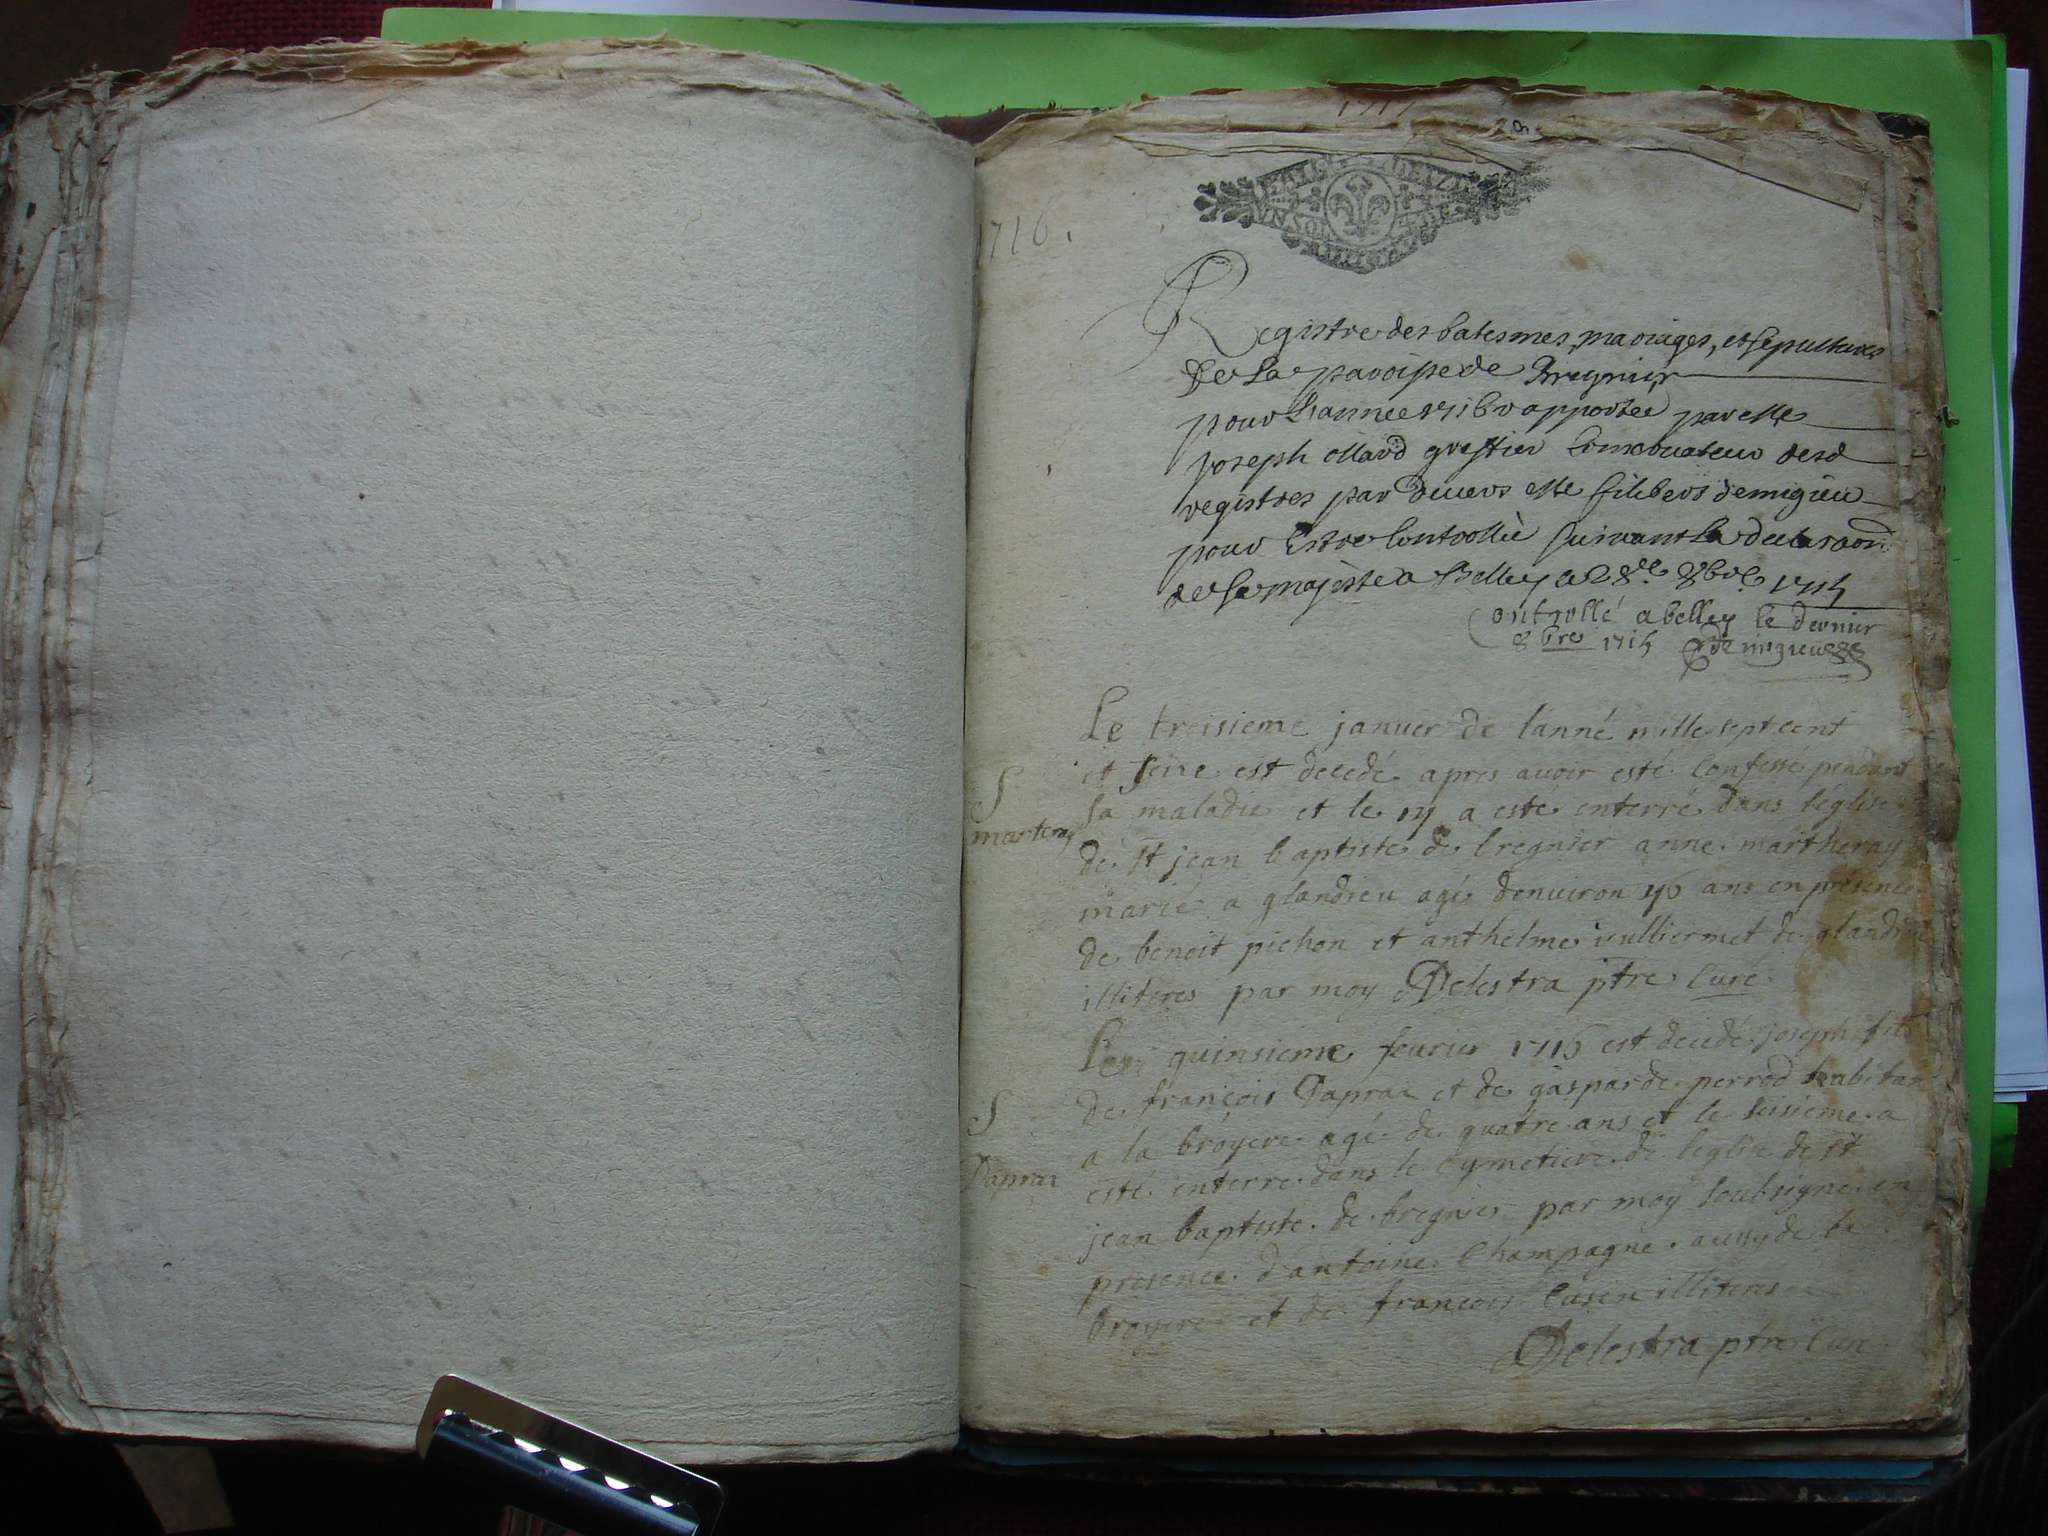 1717
1716.
Registre des batesmes, mariages, et sepultures
de La paroisse de Bregnier
pour L'année 1716 apportée par Me
Joseph ollard greffier Conservateur desd
registres par devers Me filibert demigieu
pour Estre Controllé suivant La declaraon
de Sa majesté a Belley ce 28e 8bre 1715
Controllé a belley le dernier
8bre 1715 demigieu
Le troisieme janvier de lanné mille sept cent
et seise est decedé apres avoir esté Confessé pendant
S
sa maladie et le 4 a esté enterré dans léglise
marteray
de St jean baptiste de bregnier anne martheray
marié a glandieu agé denviron 46 ans en presence
de benoit pichon et anthelme vulliermet de glandieu
illiteres par moy Delestra ptre Curé
Le quinsieme fevrier 1716 est decedé joseph fils
de françois Dapraz et de gasparde perrod habitan
S
a la bröyere agé de quatre ans et le seisieme a
Dapraz
esté enterre dans le Cymetiere de leglise de St
jean baptiste de bregnier par moy soubsigné en
presence d'antoine Champagne aussy de la
broyere et de francois Cusin illiteres
Delestra ptre Cure